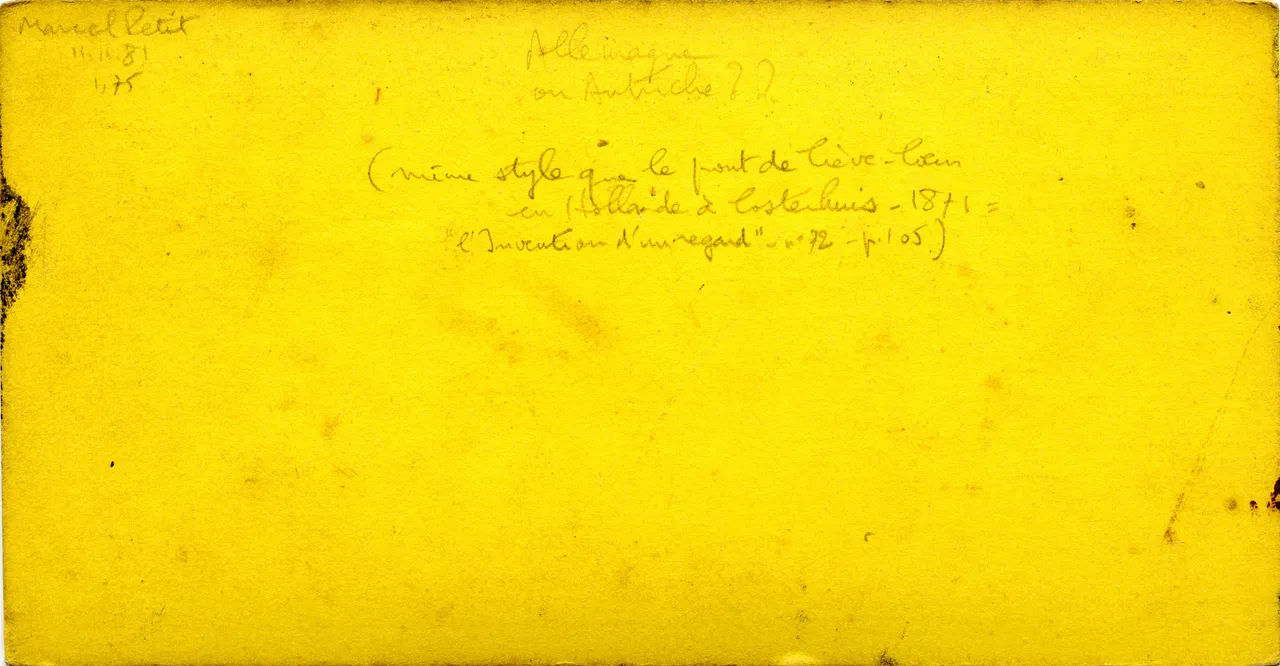 Marcel Petit
11.11.81
1,75
Allemagne
ou Autriche ? ?
(même style que le pont de
en Hollande à Oosterhuis - 1871 =
"l'Invention d'un regard" - n° 72 - p. 105)